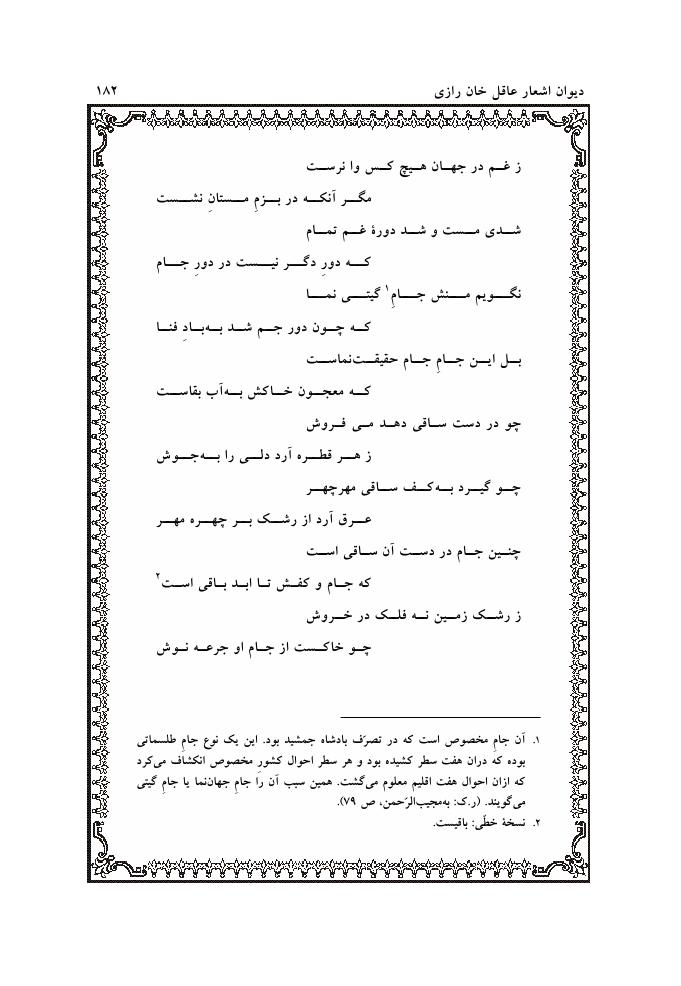 دیوان اشعار عاقل خان رازی ۱۸۲
ز غم در جهان هیچ کس وا نرست
مگر آنکه در بزمِ مستانِ نشست
شدی مست و شد دورهٔ غم تمام
که دورِ دگر نیست در دورِ جام
نگویم منش جامِ۱ گیتی نما
که چون دور جم شد به‌بادِ فنا
بل این جامِ جام حقیقت‌نماست
که معجون خاکش به‌آب بقاست
چو در دست ساقی دهد می فروش
ز هر قطره آرد دلی را به‌جوش
چو گیرد به‌کف ساقی مهرچهر
عرق آرد از رشک بر چهره مهر
چنین جام در دست آن ساقی است
که جام و کفش تا ابد باقی است۲
ز رشک زمین نه فلک در خروش
چو خاکست از جام او جرعه نوش
۱. آن جامِ مخصوص است که در تصرّف بادشاه جمشید بود. این یک نوع جامِ طلسماتی
بوده که دران هفت سطر کشیده بود و هر سطر احوال کشورِ مخصوص انکشاف می‌کرد
که ازان احوال هفت اقلیم معلوم می‌گشت. همین سبب آن را جامِ جهان‌نما یا جامِ گیتی
می‌گویند. (ر.ک: به‌مجیب‌الرّحمن، ص ۷۹).
۲. نسخهٔ خطّی: باقیست.